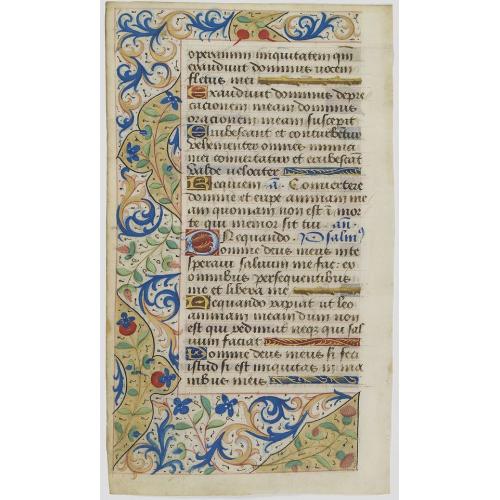 operamini iniquitatem qm
exaudivit dominus vocem
fletus mei
Exaudivit dominus depre
cacionem meam dominus
oracionem meam suscepit
Erubescant et conturbetur
vehementer omnes inimici
mei convertatur et erubescant
valde velociter
Requiem a. Convertere
domine et eripe animam me
am quoniam non est i morte
te qui memor sit tui. an.
Nequando. Psalm9
Domine deus meus in te
speravi salvum me fac: ex
omnibus persequentibus
me et libera me
Nequando rapiat ut leo
animam meam dum non
est qui redimat neqz qui sal
vum faciat
Domine deus meus si feci
istud si est iniquitas in ma
nibus meis